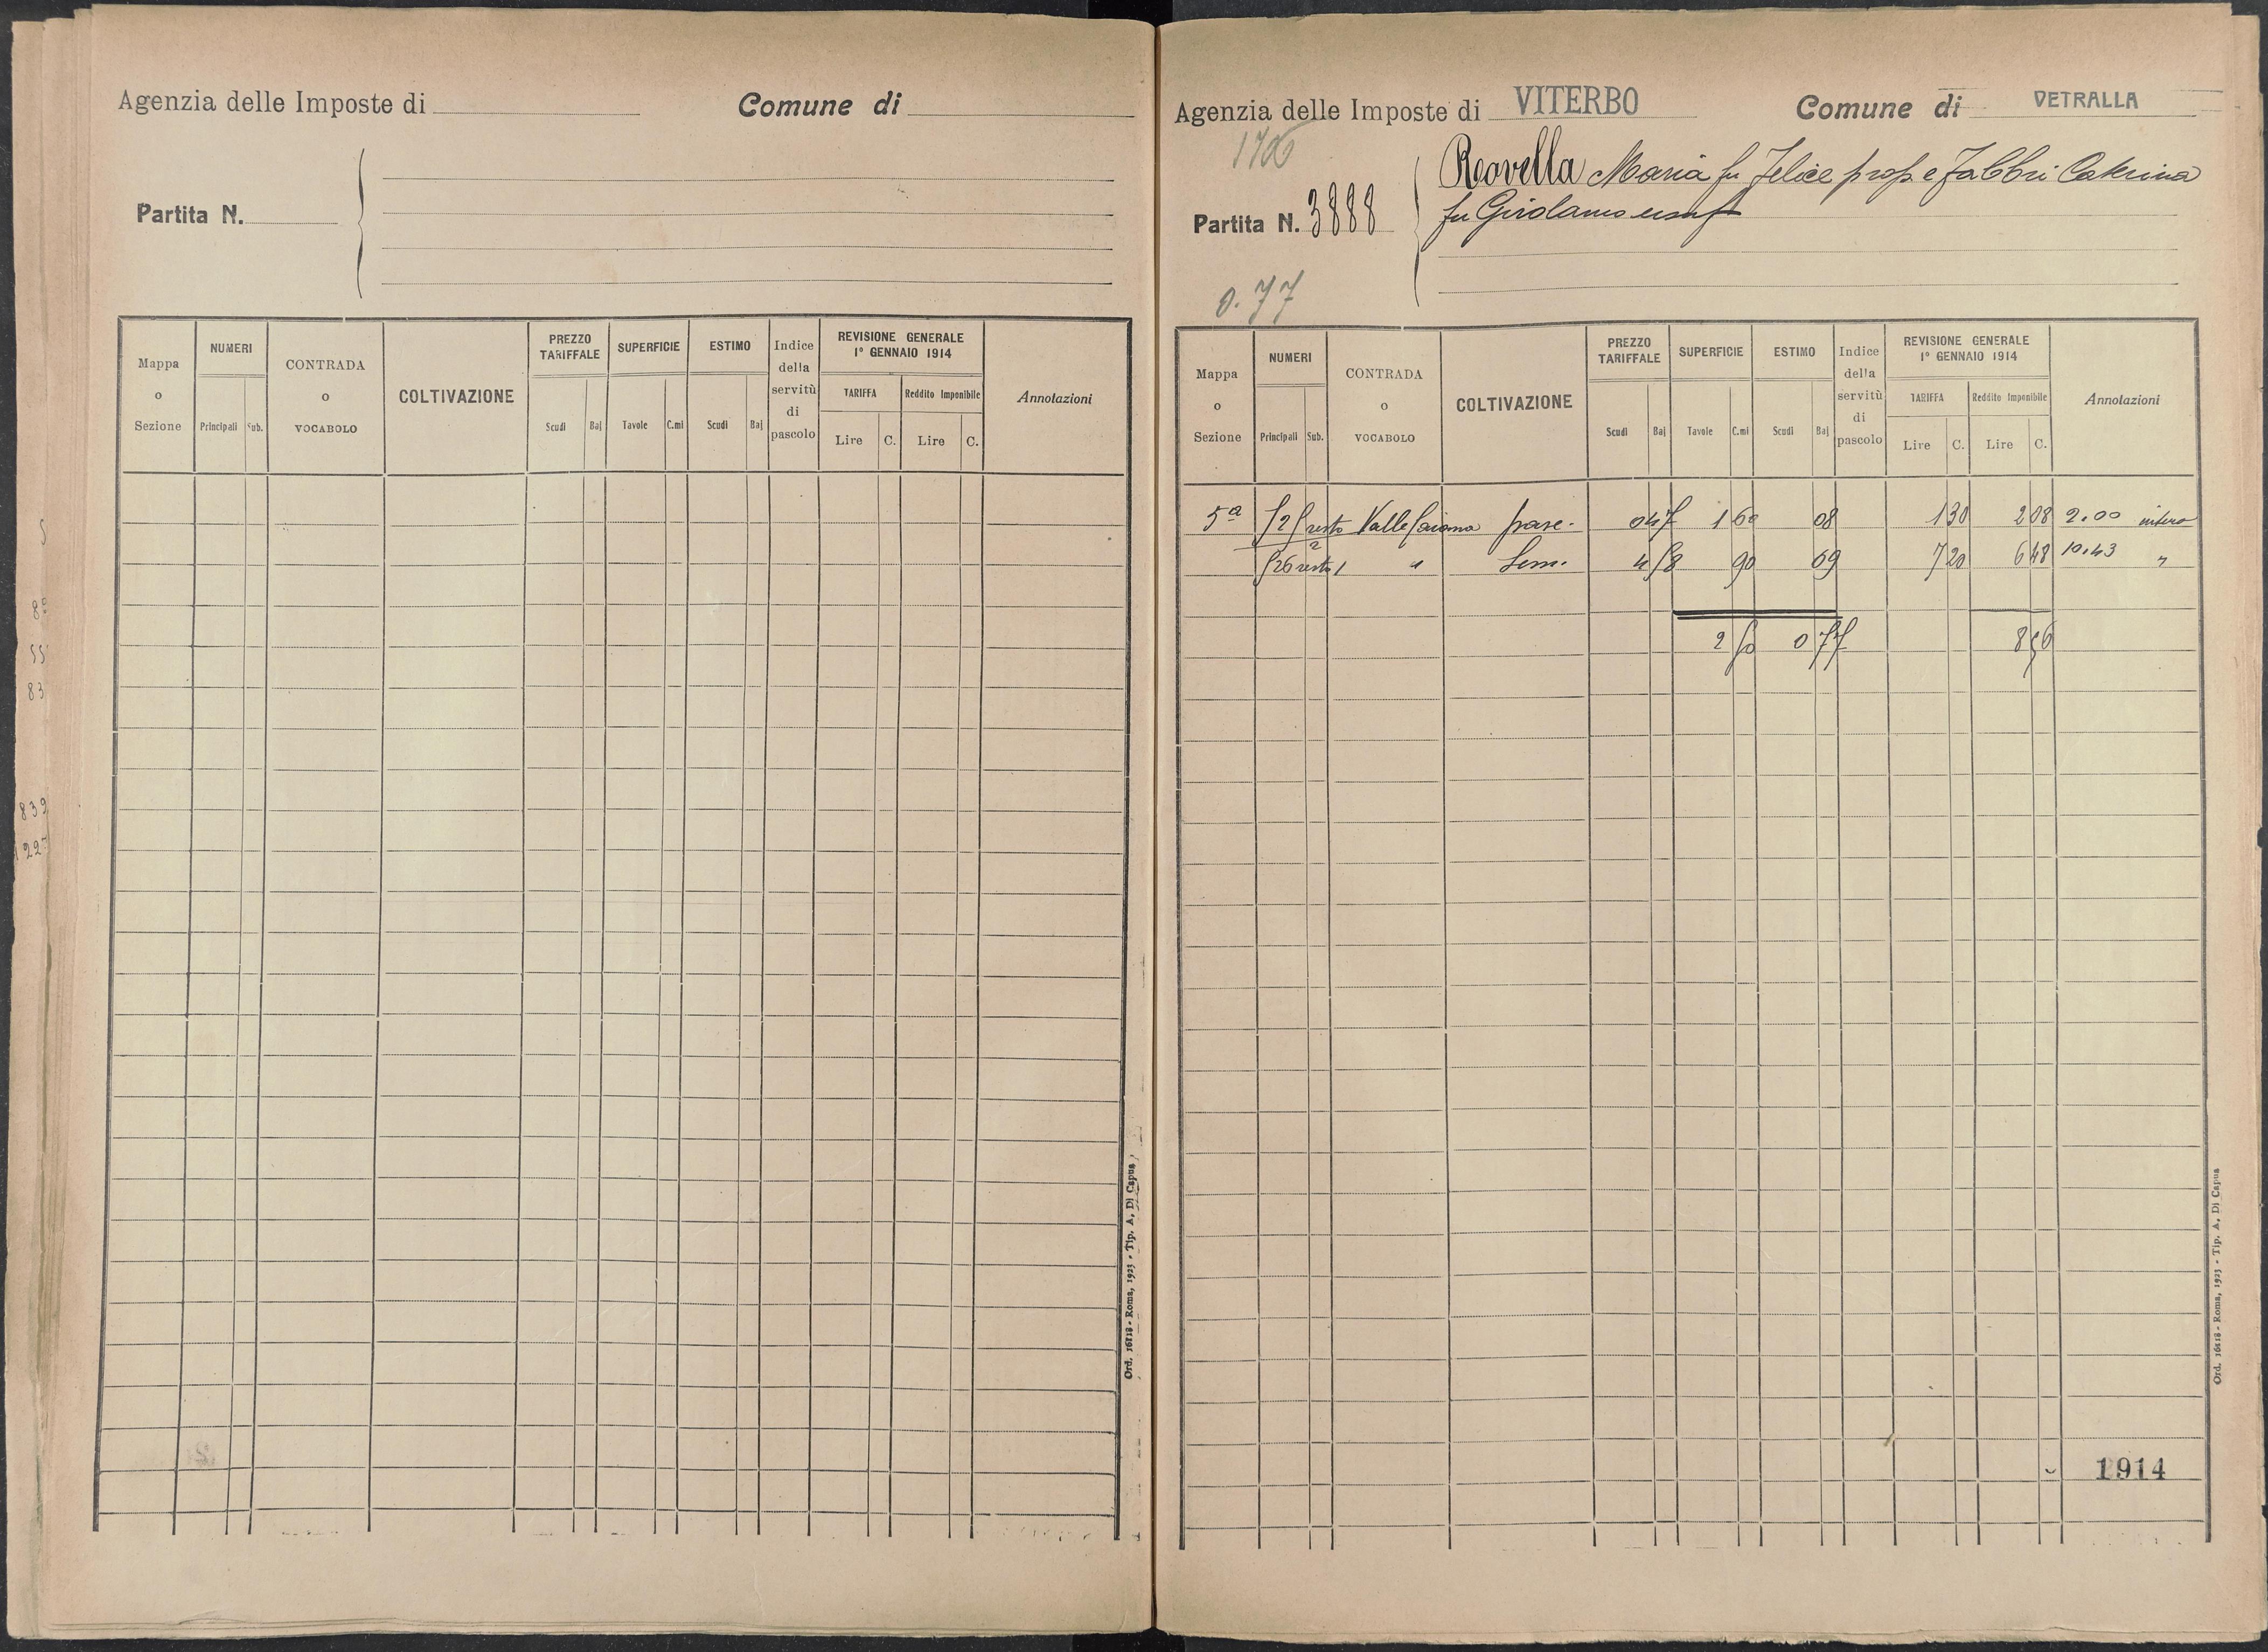 Agenzia delle Imposte di
Comune di
Partita N.
Mappa o Sezione
NUMERI
Principali
Sub.
CONTRADA o VOCABOLO
COLTIVAZIONE
PREZZO TARIFFALE
Scudi
Baj
SUPERFICIE
Tavole
C.mi
ESTIMO
Scudi
Baj
Indice della servitù di pascolo
REVISIONE GENERALE
1° GENNAIO 1914
TARIFFA
Reddito Imponibile
Lire
C.
Lire
C.
Annotazioni
55
83
839
Ord. 16118 - Roma, 1923 - Tip. A, Di Capua
Agenzia delle Imposte di VITERBO
Comune di VETRALLA
1706
Partita N. 3888
Maria fu Felice prop e Fabbri Caterina
fu Girolamo usuf
0.77
Mappa o Sezione
NUMERI
Principali
Sub.
CONTRADA o VOCABOLO
COLTIVAZIONE
PREZZO TARIFFALE
Scudi
Baj
SUPERFICIE
Tavole
C.mi
ESTIMO
Scudi
Baj
Indice della servitù di pascolo
REVISIONE GENERALE
1° GENNAIO 1914
TARIFFA
Reddito Imponibile
Lire
C.
Lire
C.
Annotazioni
5a 525 resto Valle pasc. 0 47 1 60 08 1 30 2 08 2.00 intero
2
526 resto 1 " Sem. 4 58 90 69 7 20 6 48 10.43 "
2 50 0 77 8 56
1914
Ord. 16118 - Roma, 1923 - Tip. A, Di Capua